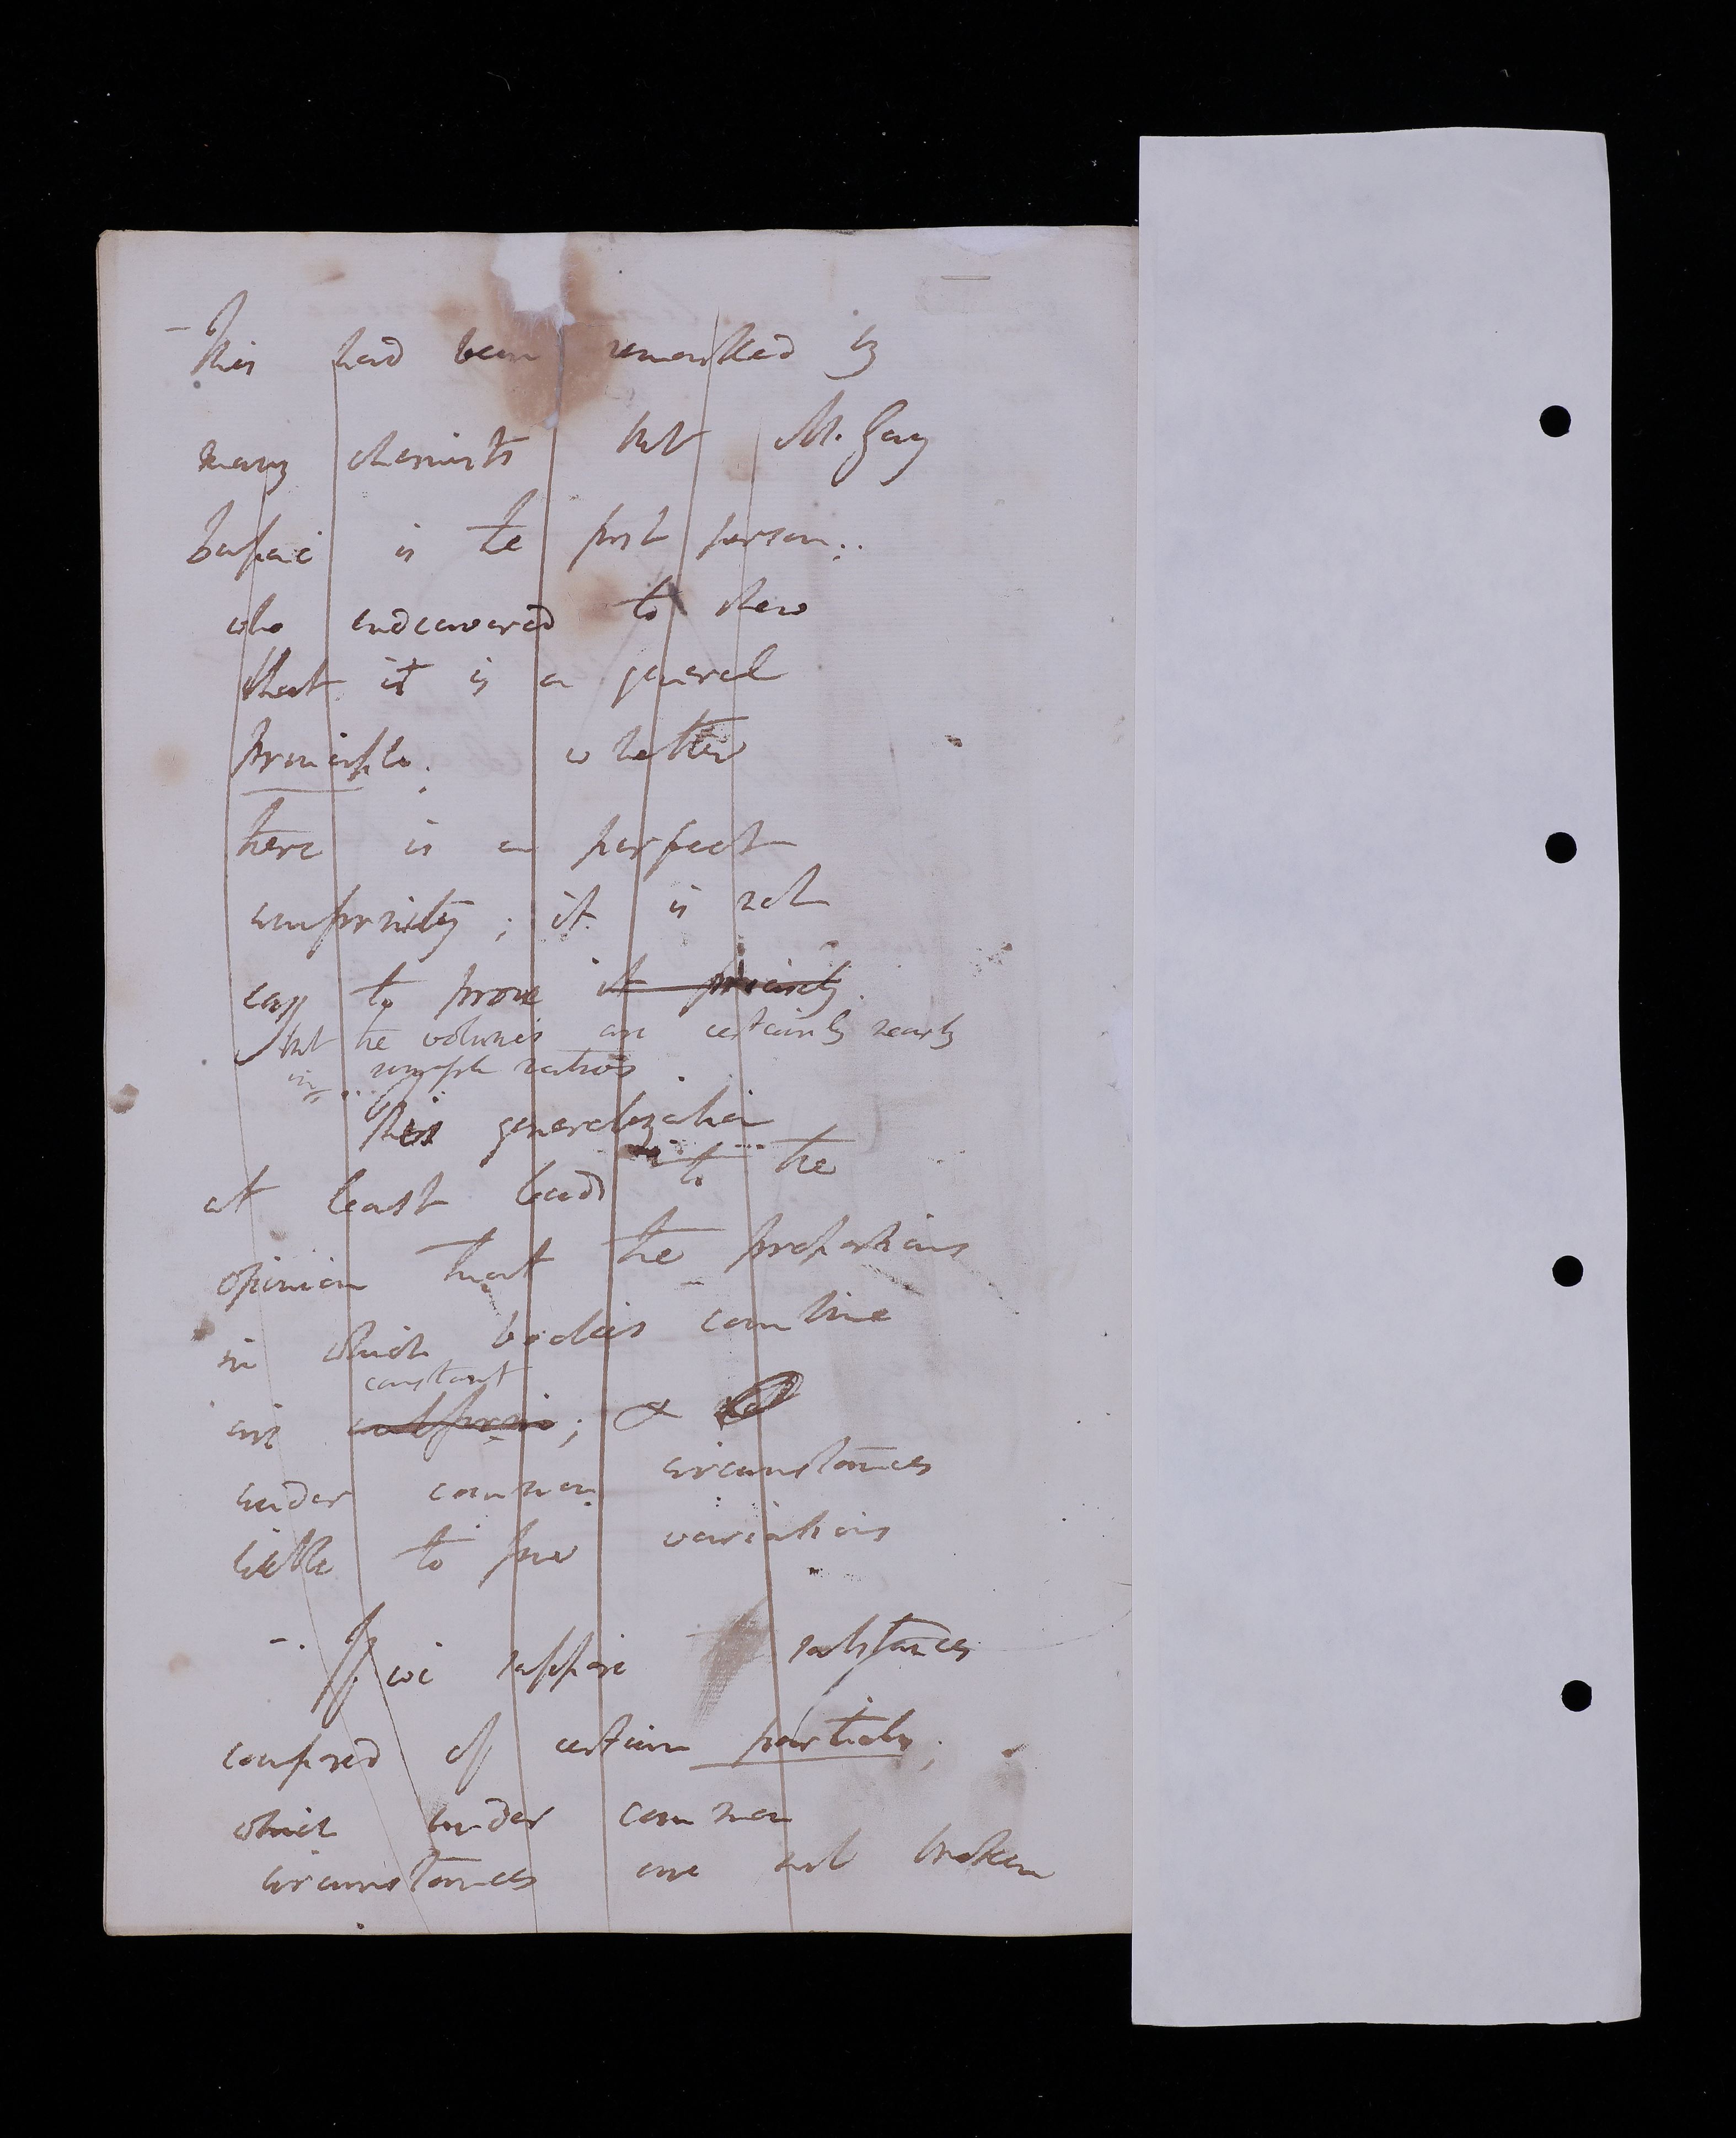 – This had been remarked by
many chemists but M. Gay
Lussac is the first person..
who endeavored to shew
that it is a general
principle. whether
there is a perfect
uniformity; it is not
easy to prove it precisely.
but the volumes are certainly nearly
in simple ratios
This generalization
at least leads to the
opinion that the proportions
in which bodies combine
constant
are uniform; &
under common circumstances
liable to few variations
–. If we suppose substances
composed of certain particles;
which under common
circumstances are not broken